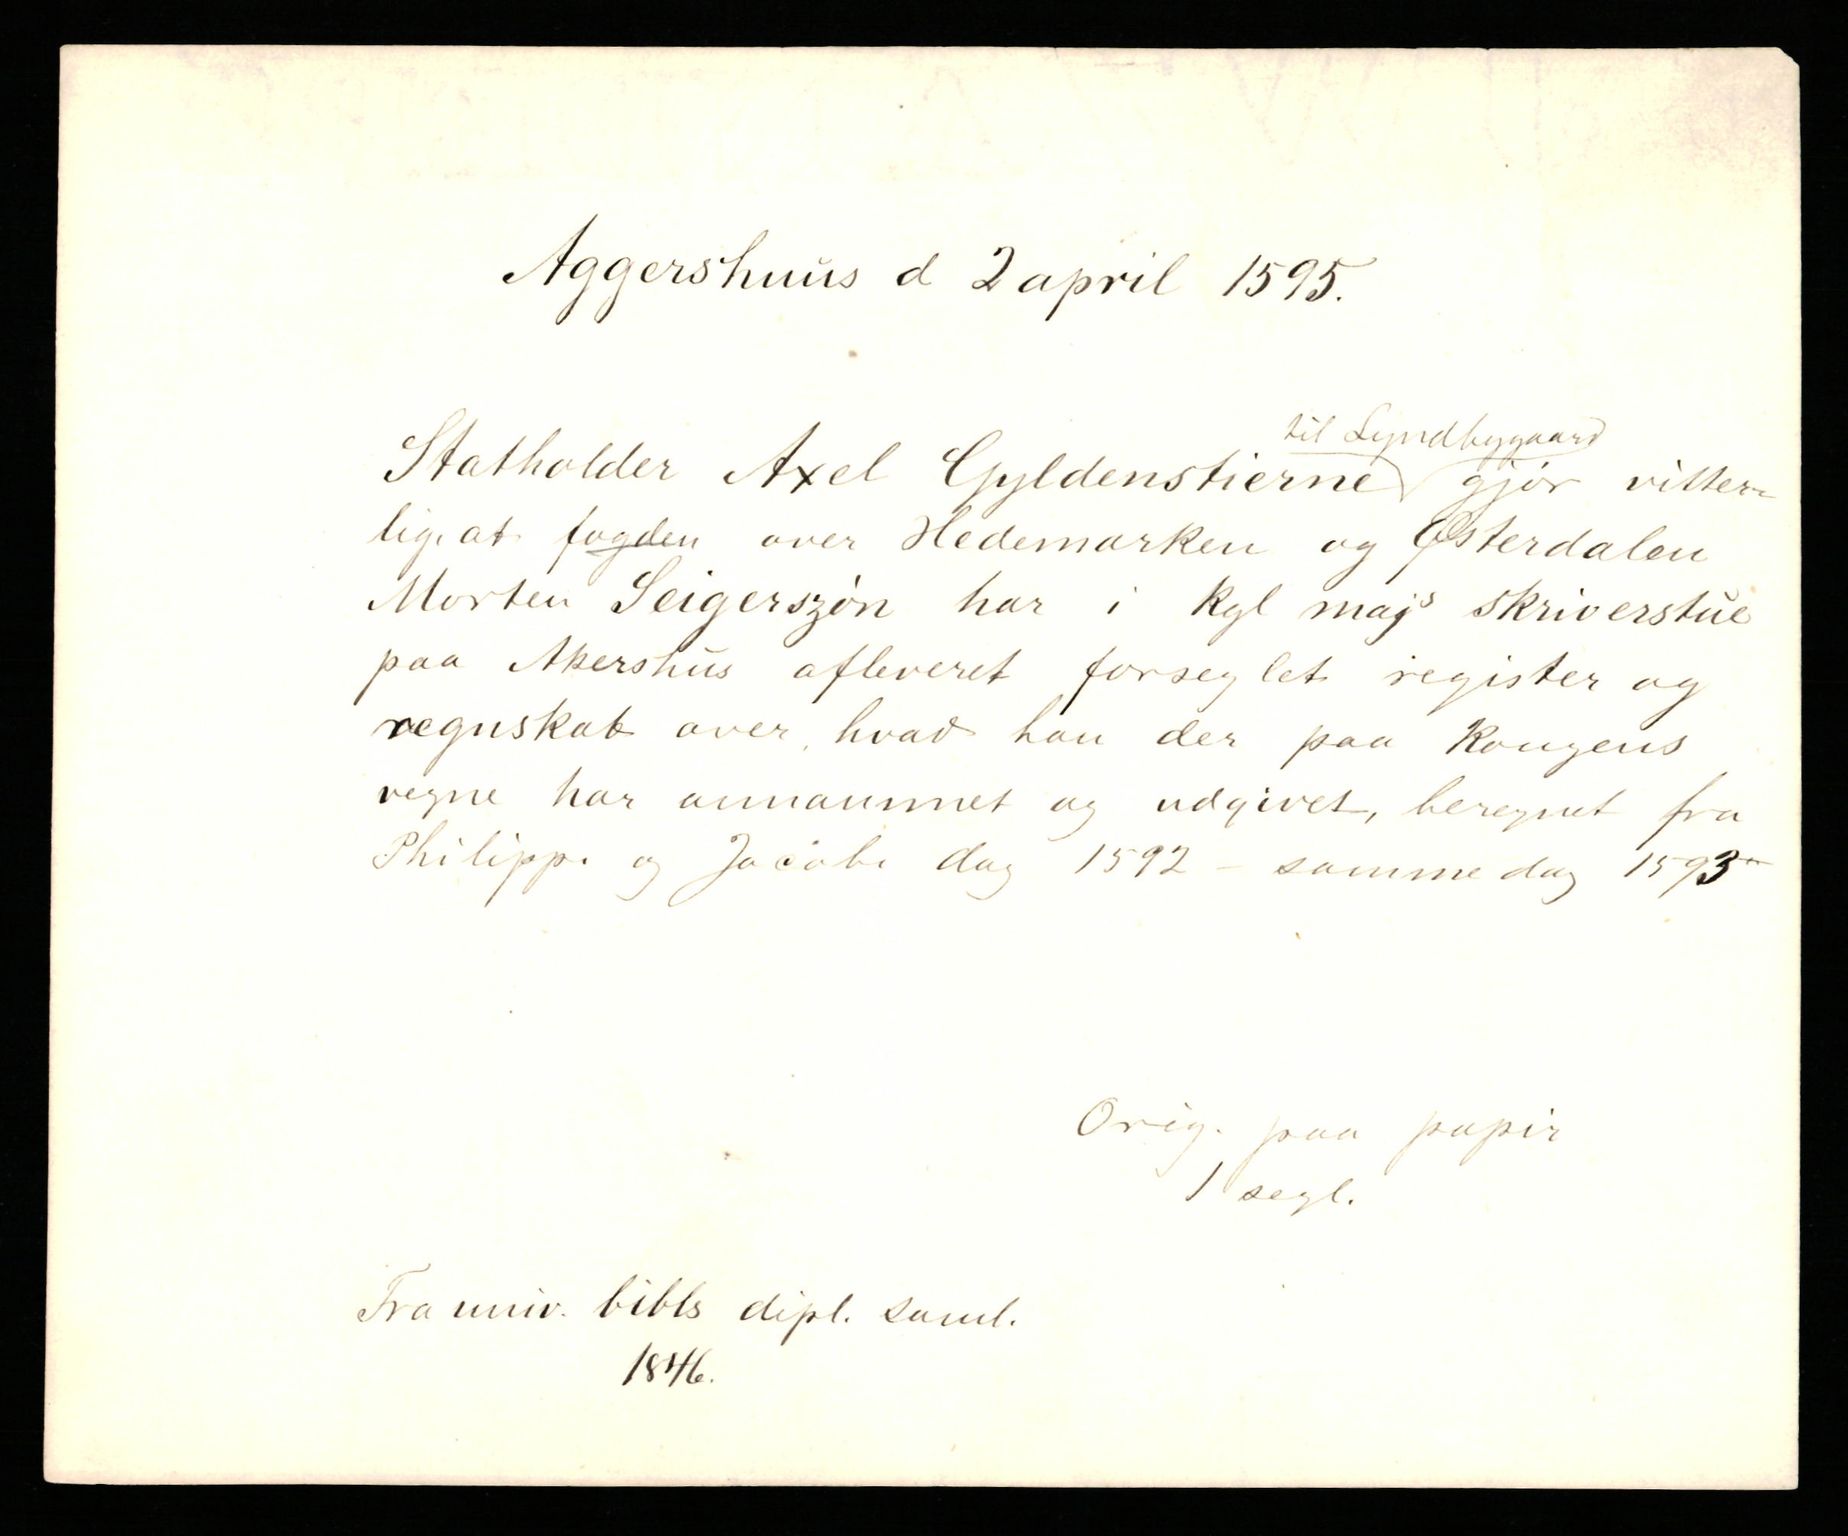 Aggershuus d 2 april 1595.
til Lyndbygaard
Statholder Axel Gyldenstierne gjör vitter-
lig, at fogden over Hedemarken og Østerdalen
Morten Seigerszön har i kgl majs skriverstue
paa Akershus afleveret forseglet register og
regnskab over, hvad han der paa kongens
vegne har annammet og udgivet, beregnet fra
Philippi og Jacobi dag 1592 - samme dag 1593
Orig. paa papir
1 segl.
Fra univ. bibls dipl. saml.
1846.